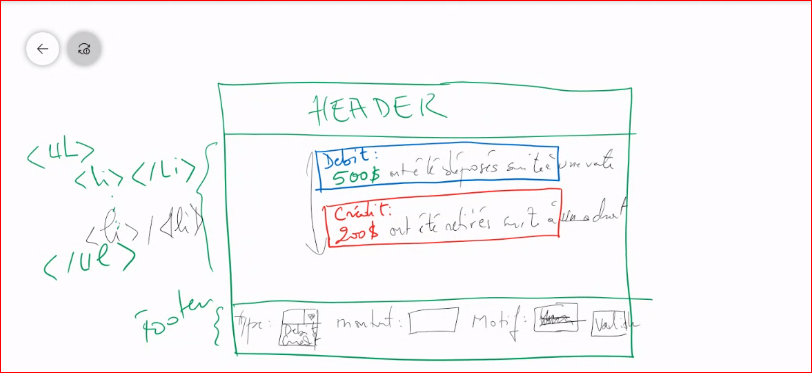 HEADER
<UL>
<li> </Li>
<li> / <li>
</ul>
Débit:
500$ ont été déposés suite à une vente
Crédit:
200$ ont été retirés suite à un achat
Footer
Type: Debit montant: Motif: Valider